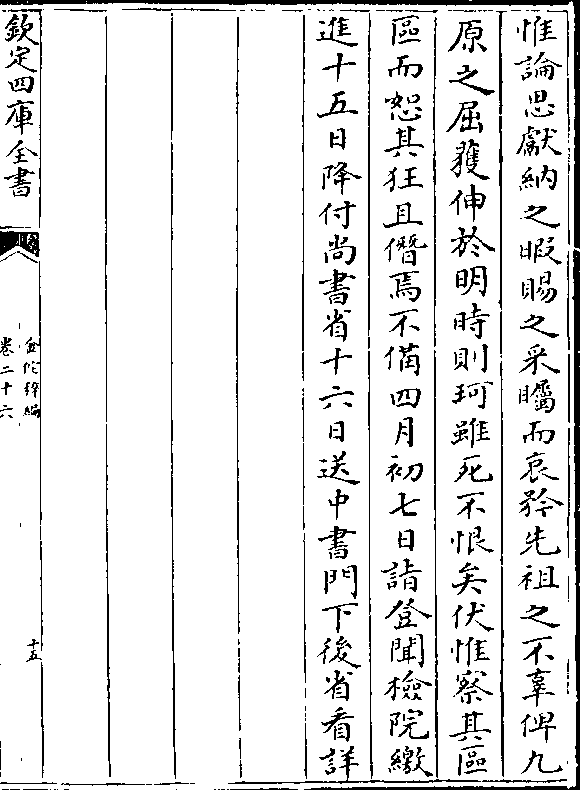 惟論思獻納之暇賜之采矚而哀矜先祖之不辜俾九
原之屈獲伸於明時則珂雖死不恨矣伏惟察其區
區而恕其狂且僭焉不備四月初七日詣登聞檢院繳
進十五日降付尚書省十六日送中書門下後省看詳
欽定四庫全書
金佗稡編
卷二十六
十五